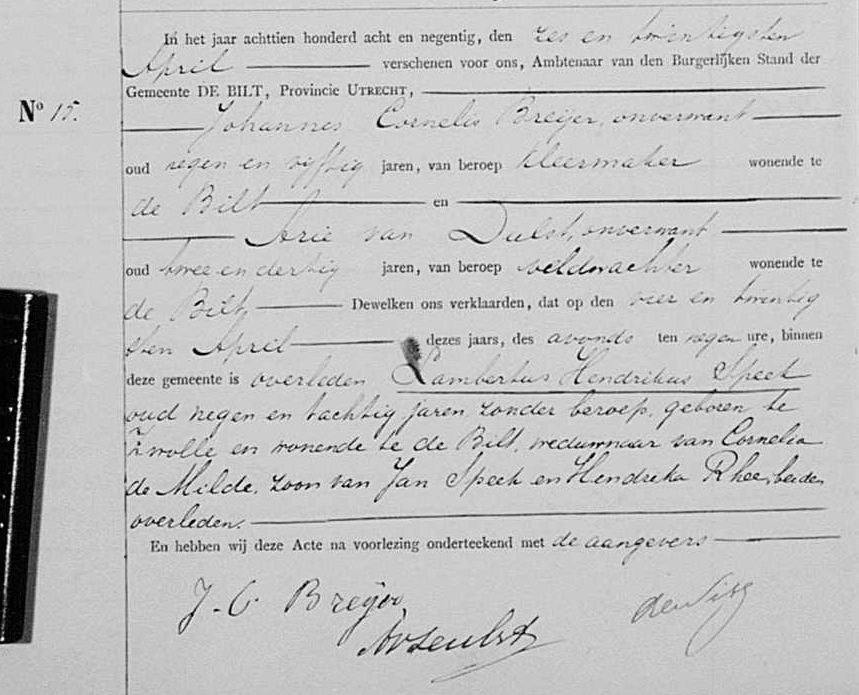 In het jaar achttien honderd acht en negentig, den zes en twintigsten
April verschenen voor ons, Ambtenaar van den Burgerlijken Stand der
Gemeente DE BILT, Provincie UTRECHT,
Nº 15.
Johannes Cornelis Breijer, onverwant
oud negen en vijftig jaren, van beroep kleermaker wonende te
de Bilt en
Arie van Dulst, onverwant
oud twee en dertig jaren, van beroep veldwachter wonende te
de Bilt Dewelken ons verklaarden, dat op den vier en twintig
sten April dezes jaars, des avonds ten negen ure, binnen
deze gemeente is overleden Lambertus Hendrikus Speek
oud negen en tachtig jaren zonder beroep, geboren te
Zwolle en wonende te de Bilt, weduwnaar van Cornelia
de Milde, zoon van Jan Speek en Hendreka Rhee, beiden
overleden.
En hebben wij deze Acte na voorlezing onderteekend met de aangevers
J. C. Breijer